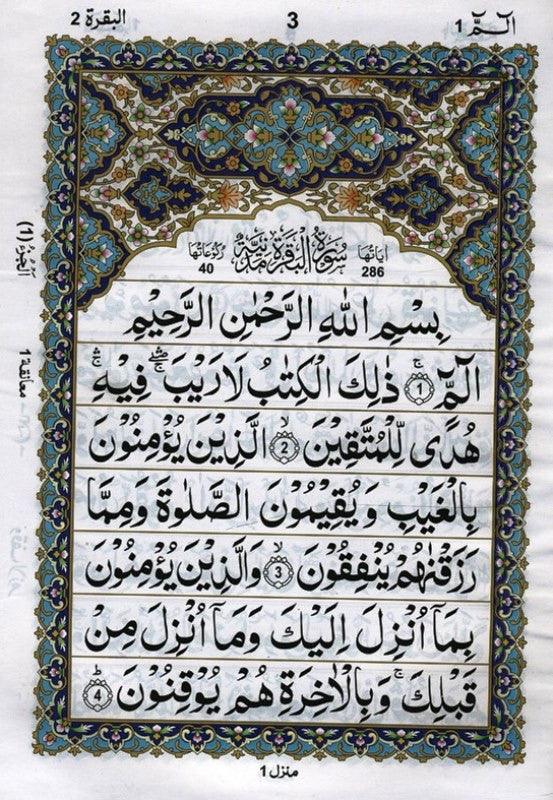 الٓمّٓ 1
3
البقرة 2
اٰیاتها 286
سُوْرَةُ الْبَقَرَةِ مَدَنِيَّةٌ
رُكُوْعَاتُها 40
بِسْمِ اللّٰهِ الرَّحْمٰنِ الرَّحِيْمِ
الٓمّٓ ۚ ‎1 ذٰلِكَ الْكِتٰبُ لَا رَيْبَ ۛۖ فِيْهِ ۛۚ
هُدًى لِّلْمُتَّقِيْنَ ۙ 2 الَّذِيْنَ يُؤْمِنُوْنَ
بِالْغَيْبِ وَيُقِيْمُوْنَ الصَّلٰوةَ وَمِمَّا
رَزَقْنٰهُمْ يُنْفِقُوْنَ ۙ 3 وَالَّذِيْنَ يُؤْمِنُوْنَ
بِمَآ اُنْزِلَ اِلَيْكَ وَمَآ اُنْزِلَ مِنْ
قَبْلِكَ ۚ وَبِالْاٰخِرَةِ هُمْ يُوْقِنُوْنَ ؕ 4
الْجُزْءُ (1)
معانقة 1
منزل 1